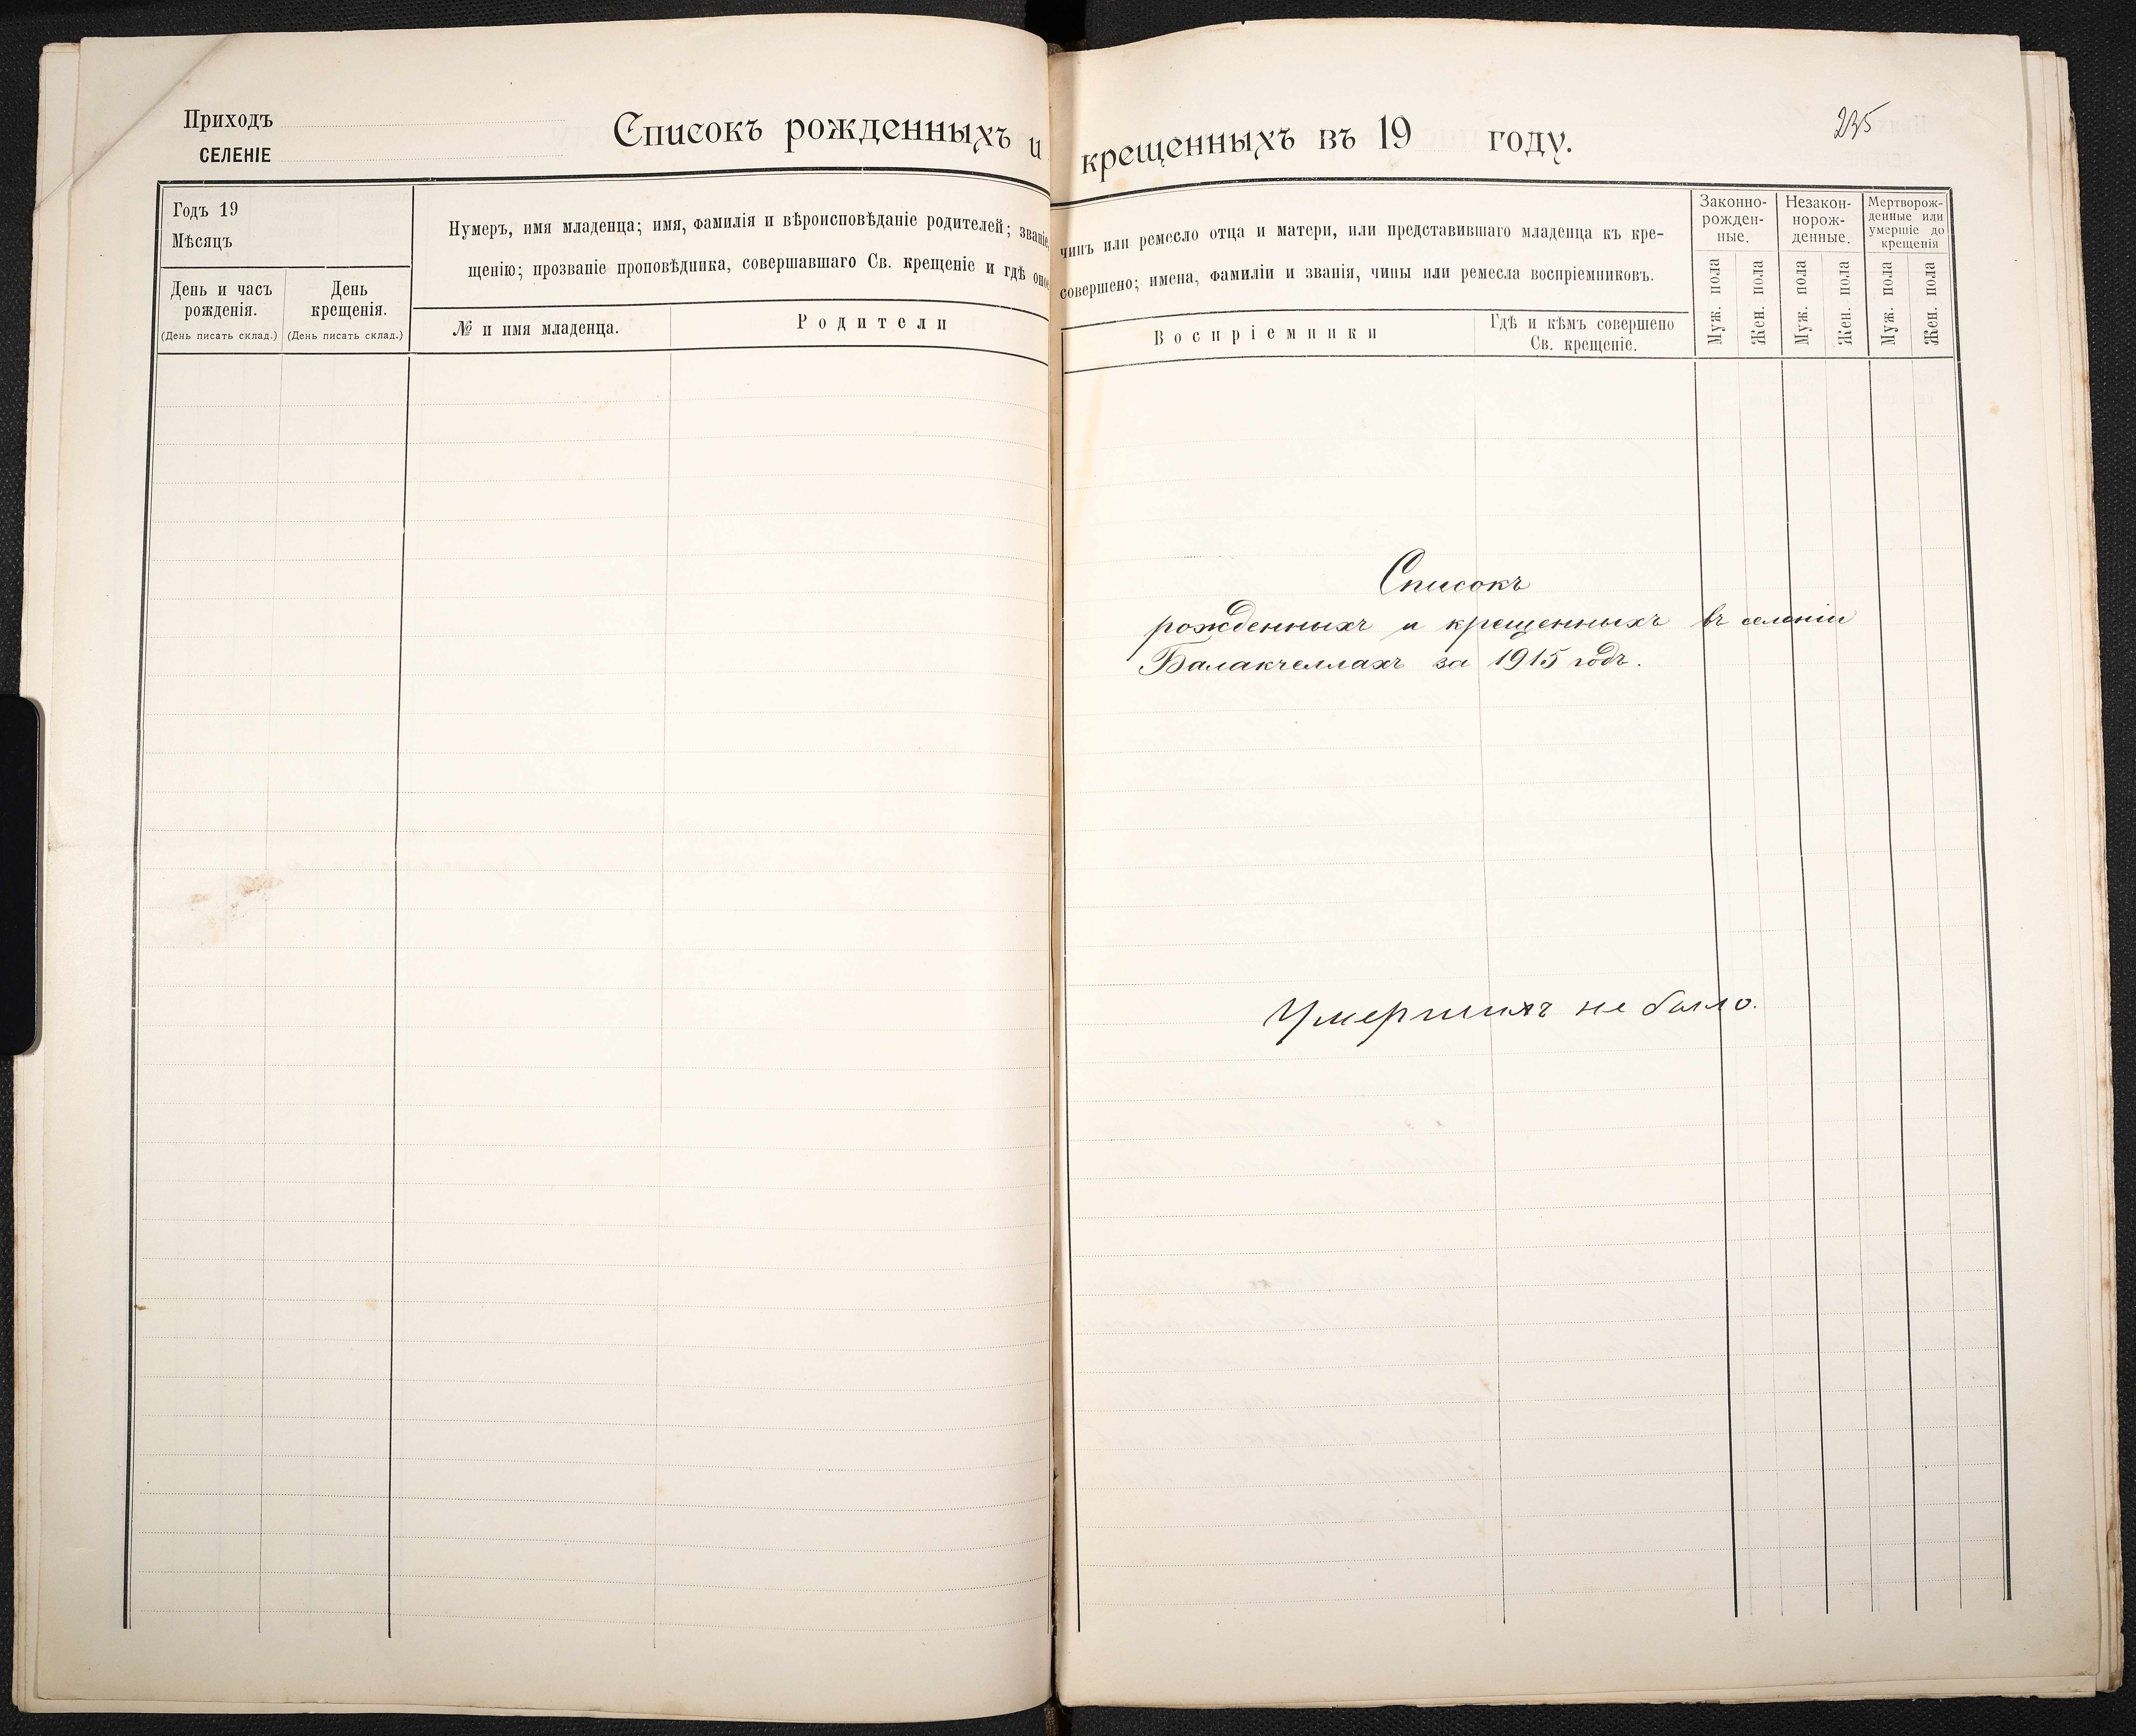 Приходъ
СЕЛЕНІЕ
Списокъ рожденныхъ и крещенныхъ въ 19 году.
235
Годъ 19
Мѣсяцъ
День и часъ рожденія.
(День писать склад.)
День крещенія.
(День писать склад.)
Нумеръ, имя младенца; имя, фамилія и вѣроисповѣданіе родителей; званіе,
щенію; прозваніе проповѣдника, совершавшаго Св. крещеніе и гдѣ оное
№ и имя младенца.
Родители
чинъ или ремесло отца и матери, или представившаго младенца къ кре-
совершено; имена, фамиліи и званія, чины или ремесла воспріемниковъ.
Воспріемники
Гдѣ и кѣмъ совершено
Св. крещеніе.
Законно-
рожден-
ные.
Незакон-
норож-
денные.
Мертворож-
денные или
умершіе до
крещенія
Муж. пола
Жен. пола
Муж. пола
Жен. пола
Муж. пола
Жен. пола
Списокъ
рожденныхъ и крещенныхъ въ селеніи
Балакчеллахъ за 1915 годъ.
Умершихъ не было.